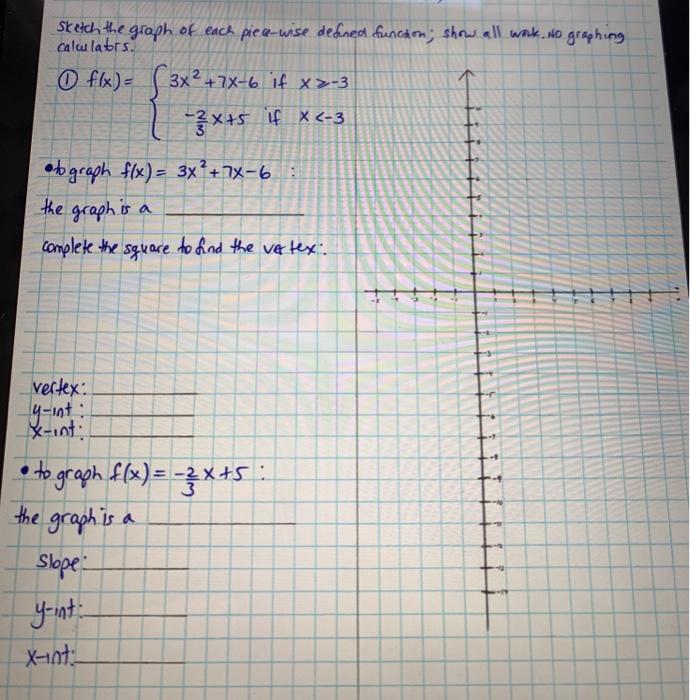 Sketch the graph of each piece-wise defined function; show all work. No graphing
calculators.
① f(x) = { 3x² + 7x - 6 if x ≥ -3
-2/3 x + 5 if x < -3
• to graph f(x) = 3x² + 7x - 6 :
the graph is a
complete the square to find the vertex:
vertex:
y-int:
x-int:
• to graph f(x) = -2/3 x + 5 :
the graph is a
Slope:
y-int:
x-int: